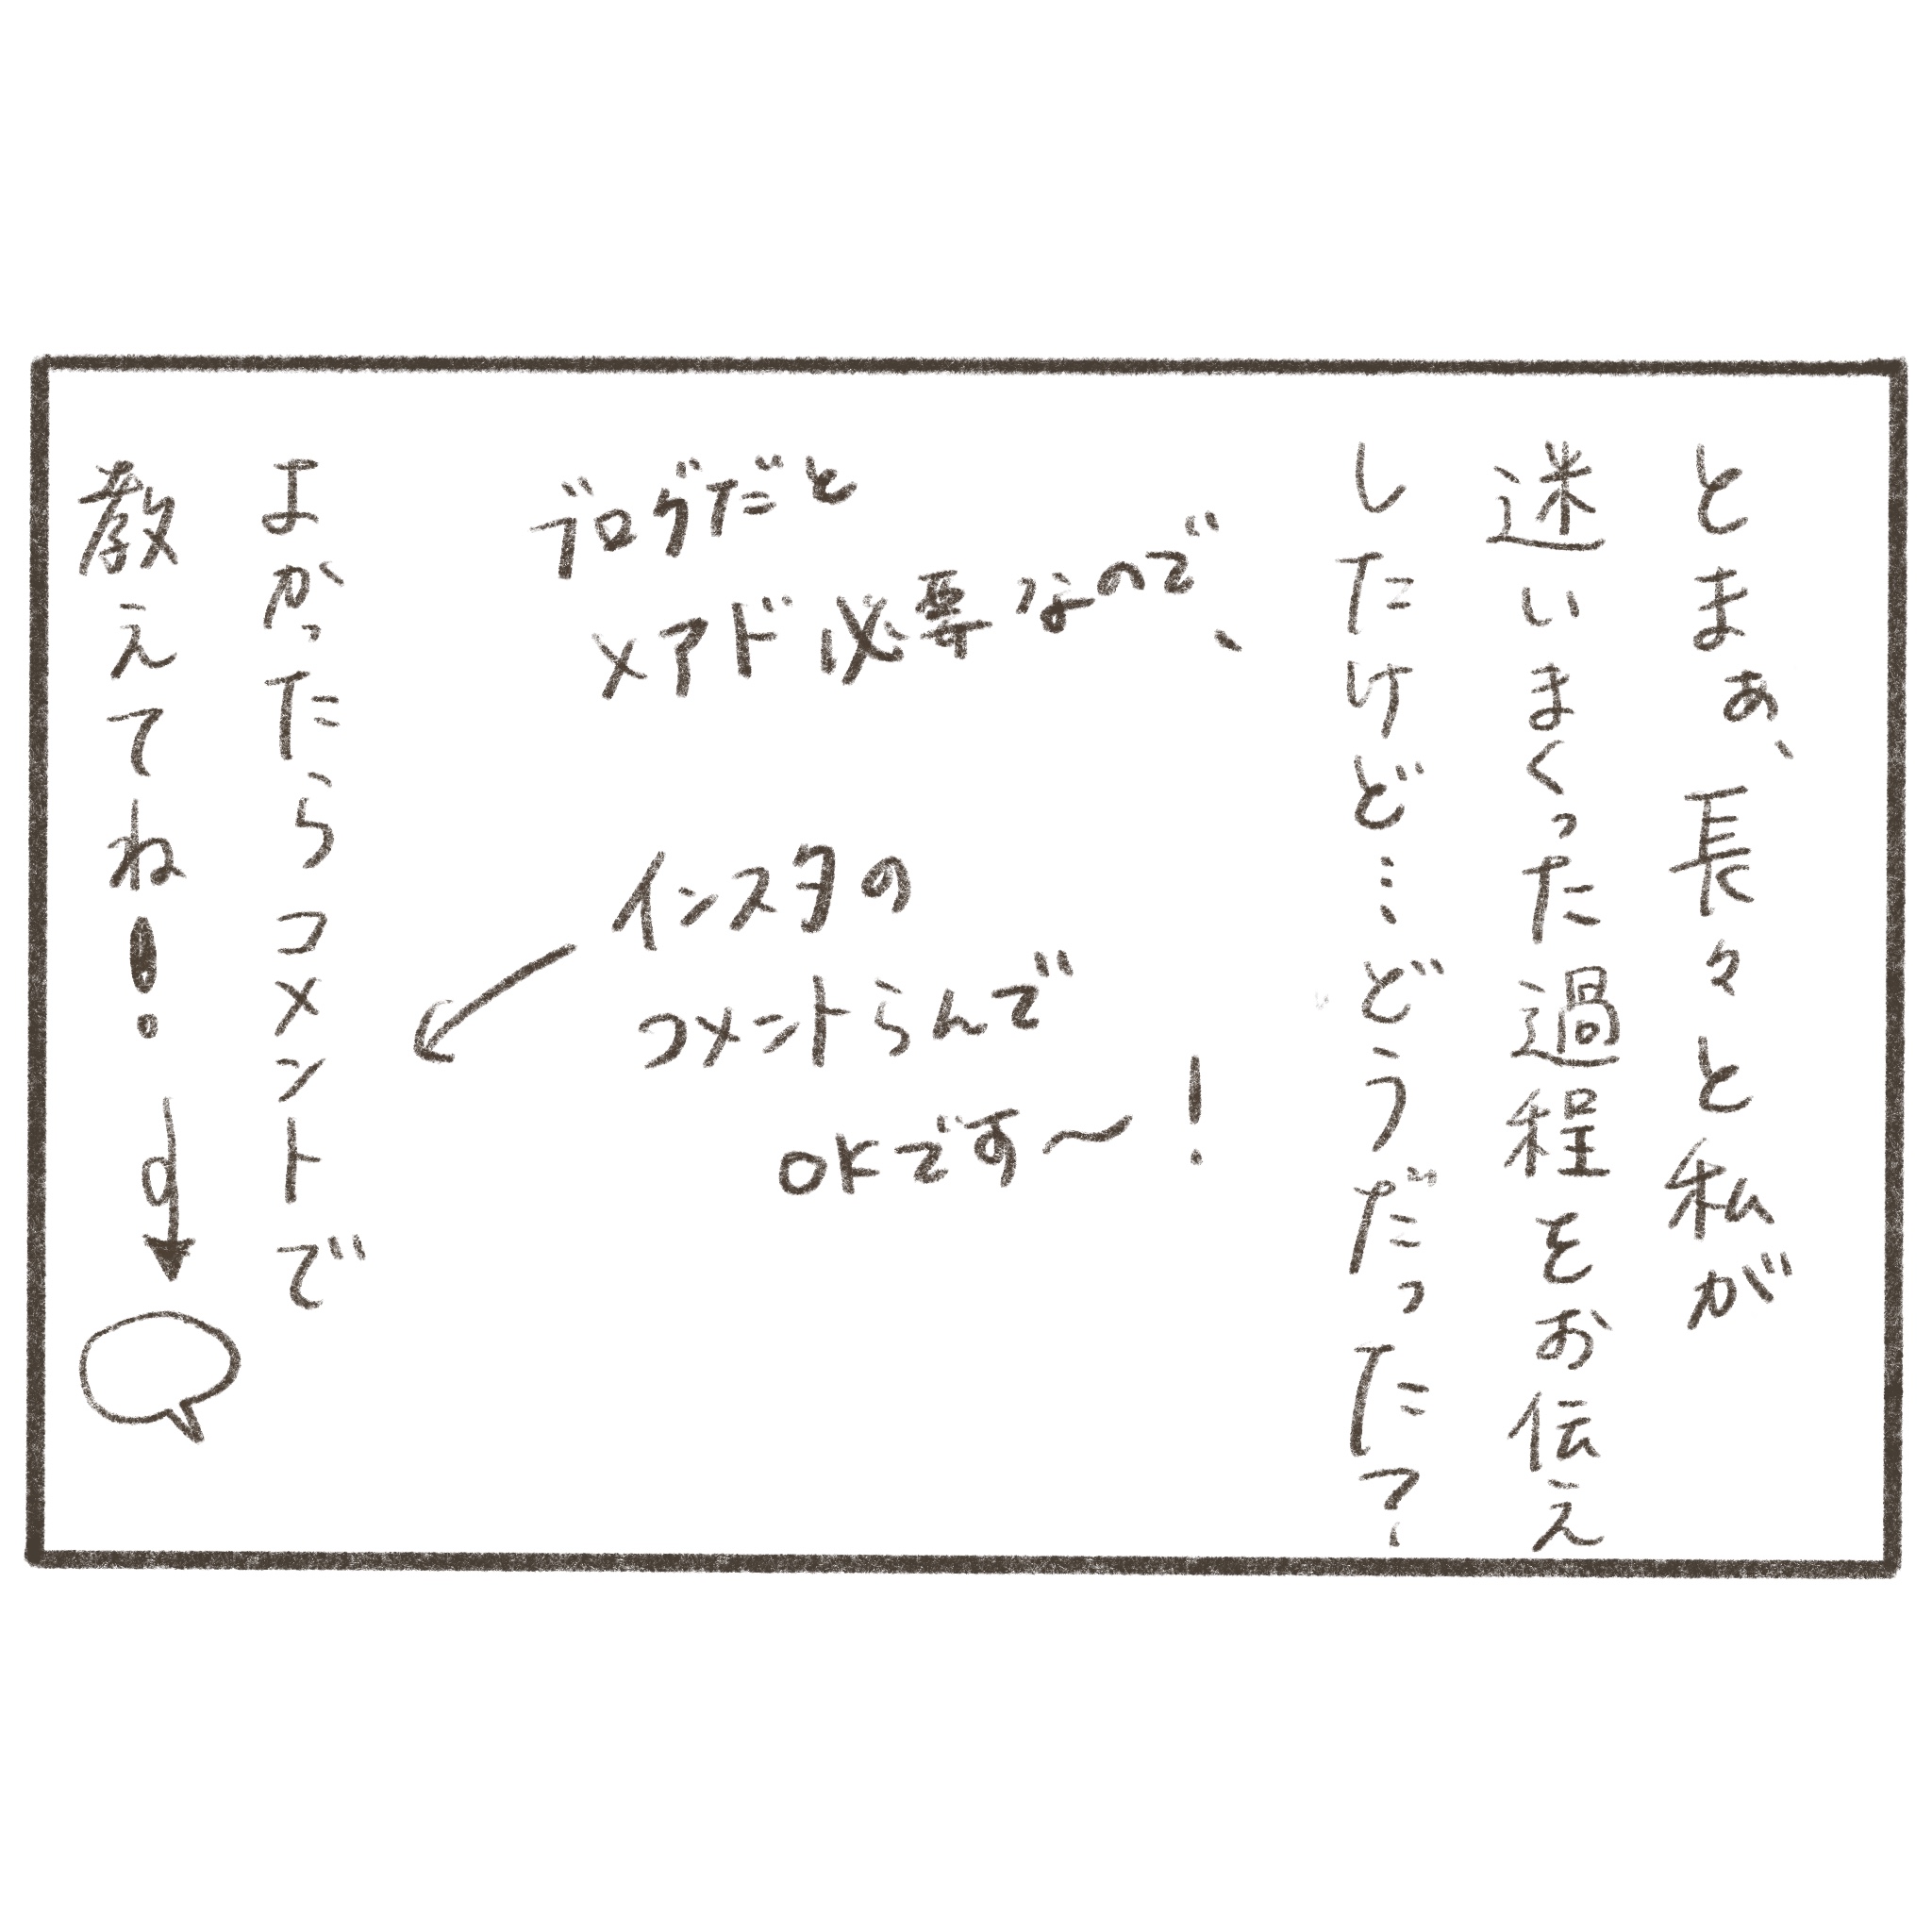 とまぁ、長々と私が
迷いまくった過程をお伝え
したけど…どうだった？
ブログだと
メアド必要なので、
インスタの
コメントらんで
OKです〜！
よかったらコメントで
教えてね！